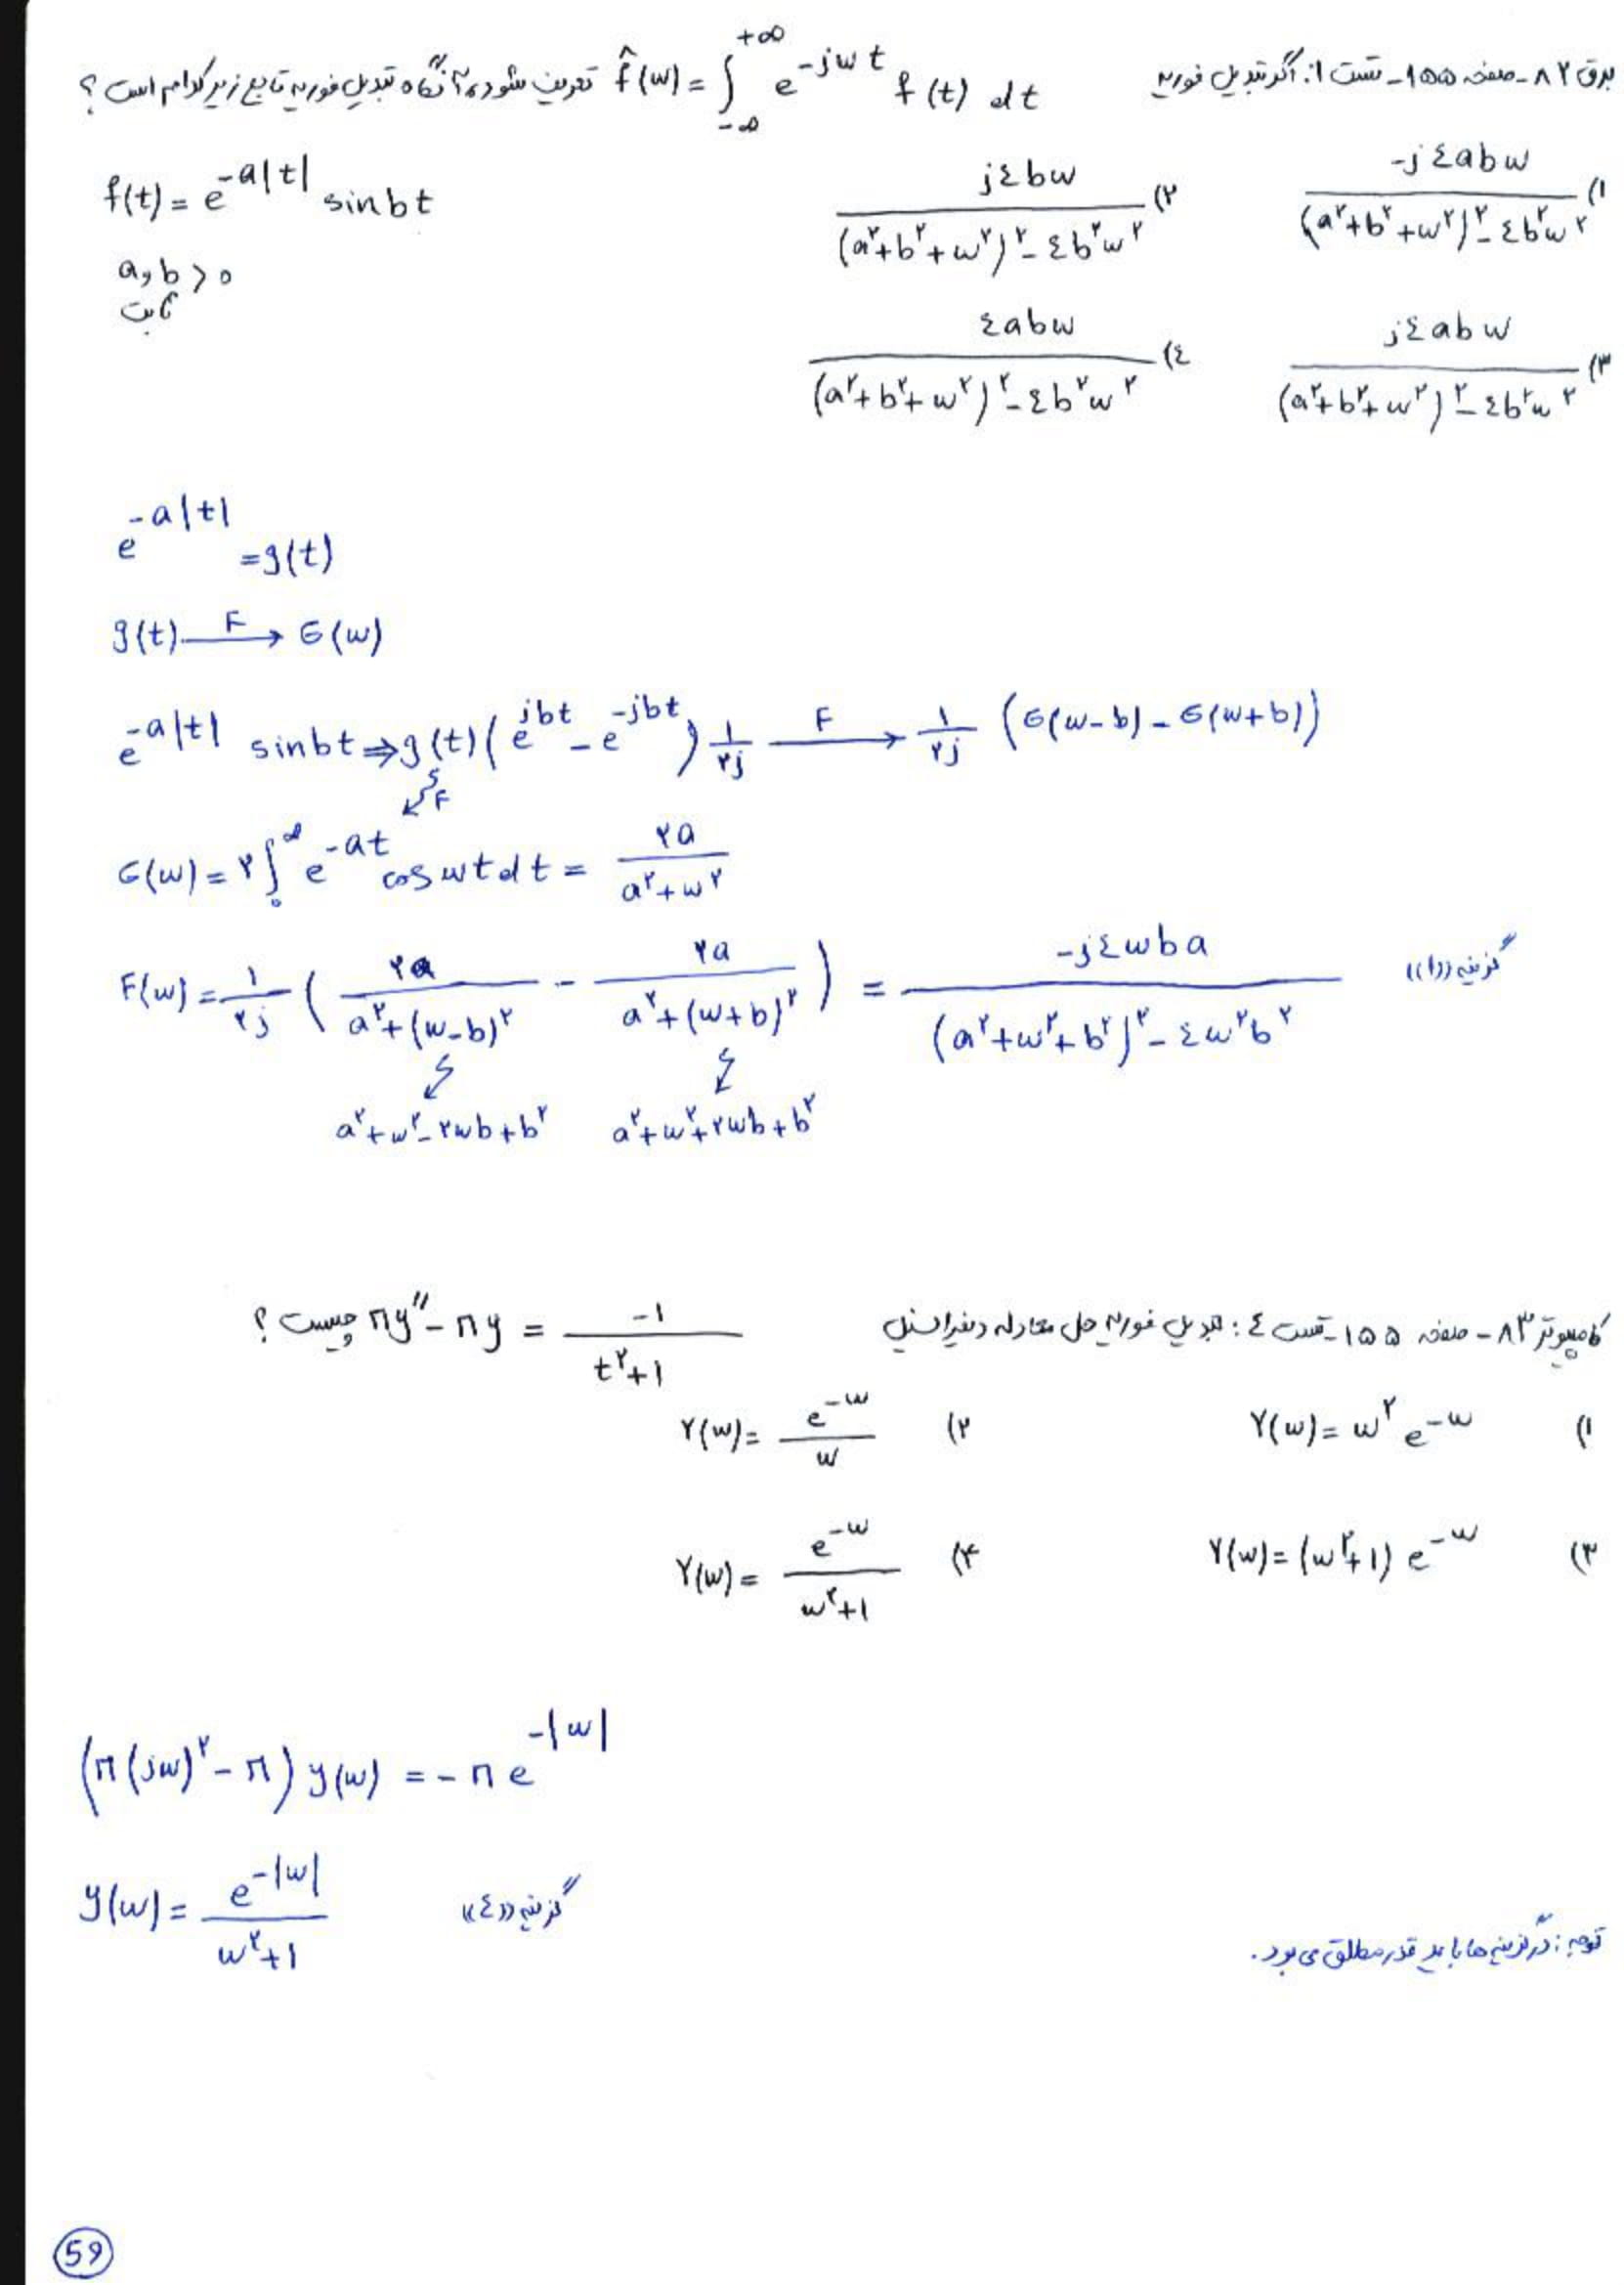 برق ۸۲ - صفحه ۱۵۵ - تست ۱: اگر تبدیل فوریه f̂(w) = ∫_{-∞}^{+∞} e^{-jwt} f(t) dt تعریف شود، آنگاه تبدیل فوریه تابع زیر کدام است ؟
f(t) = e^{-a|t|} sin bt
a, b > ۰
ثابت
۱) -j۴abw / ((a^۲+b^۲+w^۲)^۲ - ۴b^۲w^۲)
۲) j۴bw / ((a^۲+b^۲+w^۲)^۲ - ۴b^۲w^۲)
۳) j۴abw / ((a^۲+b^۲+w^۲)^۲ - ۴b^۲w^۲)
۴) ۴abw / ((a^۲+b^۲+w^۲)^۲ - ۴b^۲w^۲)
e^{-a|t|} = g(t)
g(t) —F→ G(w)
e^{-a|t|} sin bt ⇒ g(t)(e^{jbt} - e^{-jbt}) ۱/۲j —F→ ۱/۲j (G(w-b) - G(w+b))
F
G(w) = ۲∫_۰^∞ e^{-at} cos wt dt = ۲a / (a^۲+w^۲)
F(w) = ۱/۲j (۲a / (a^۲+(w-b)^۲) - ۲a / (a^۲+(w+b)^۲)) = -j۴wba / ((a^۲+w^۲+b^۲)^۲ - ۴w^۲b^۲) گزینه ((۱))
a^۲+w^۲-۲wb+b^۲ a^۲+w^۲+۲wb+b^۲
کامپیوتر ۸۳ - صفحه ۱۵۵ - تست ۴: تبدیل فوریه حل معادله دیفرانسیل πy'' - πy = -۱ / (t^۲+۱) چیست ؟
۱) Y(w) = w^۲ e^{-w}
۲) Y(w) = e^{-w} / w
۳) Y(w) = (w^۲+۱) e^{-w}
۴) Y(w) = e^{-w} / (w^۲+۱)
(π(jw)^۲ - π) y(w) = -π e^{-|w|}
y(w) = e^{-|w|} / (w^۲+۱) گزینه ((۴))
توجه: در گزینه ها باید قدر مطلق می بود.
59